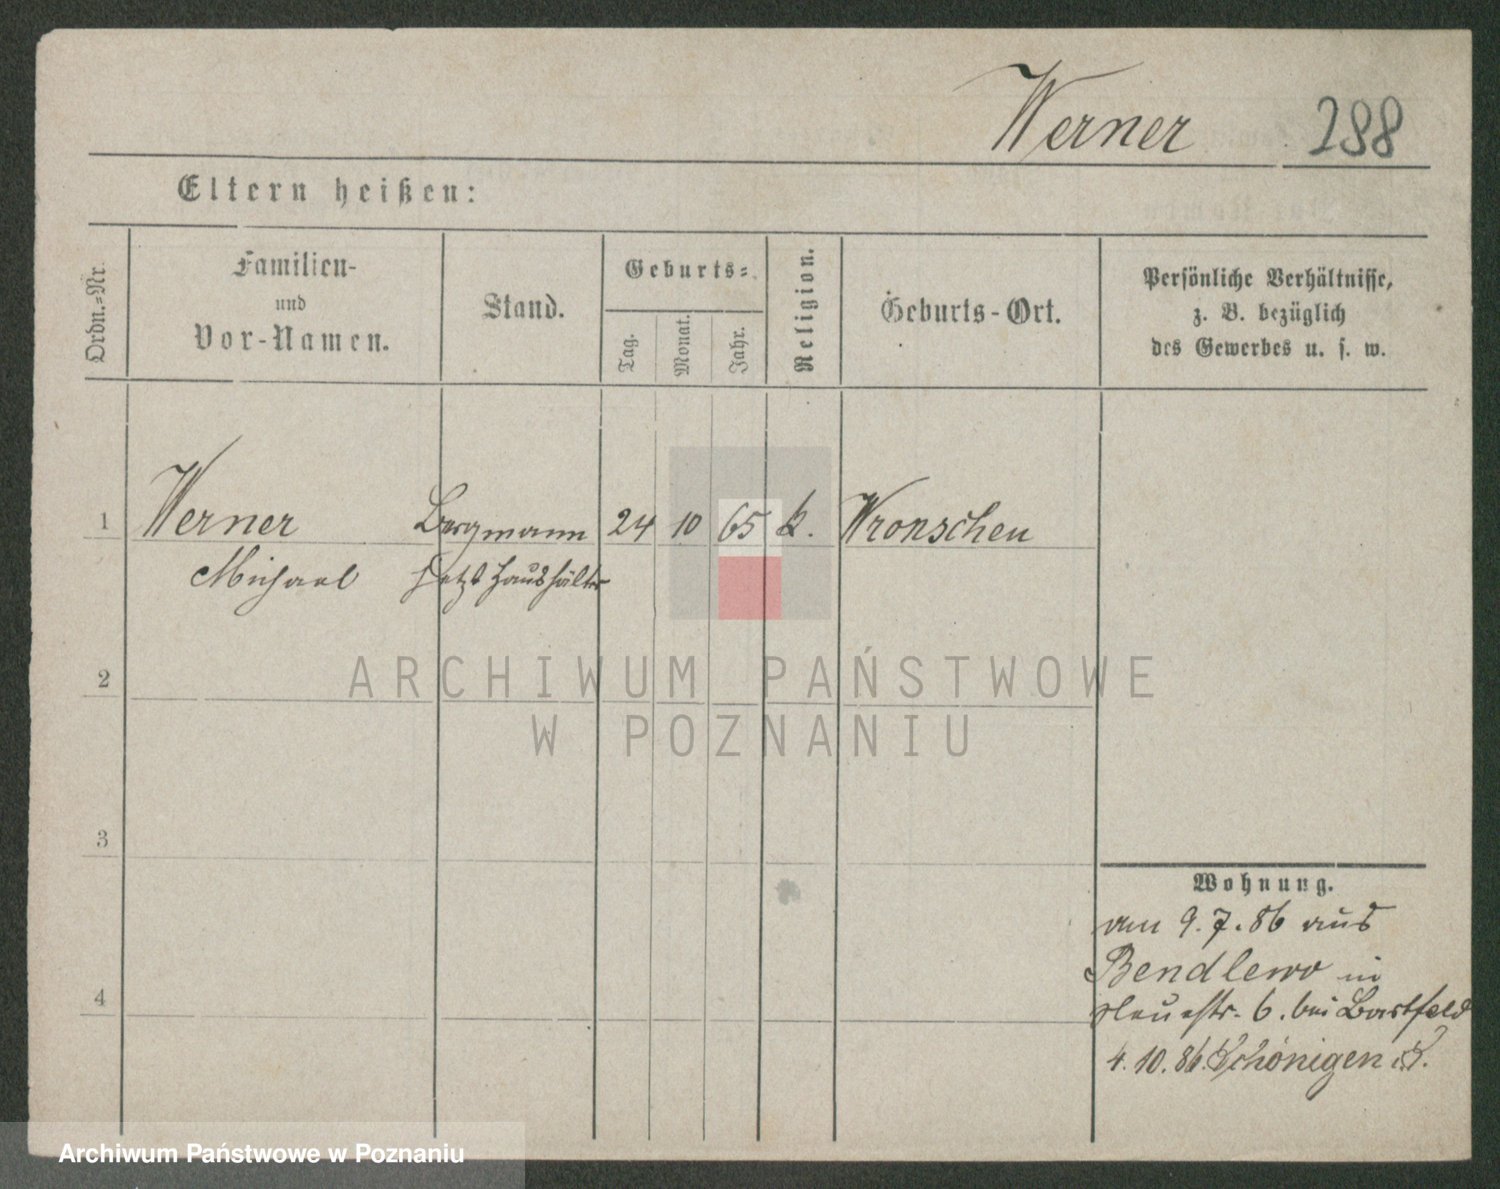 Werner 288
Eltern heißen:
Ordn.-Nr.
Familien-
und
Vor-Namen.
Stand.
Geburts-
Tag.
Monat.
Jahr.
Religion.
Geburts-Ort.
Persönliche Verhältnisse,
z. B. bezüglich
des Gewerbes u. s. w.
1 Werner Bergmann 24 10 65 k. Wronschen
Michael jetzt Haushälter
2
3
4
Wohnung.
am 9.7.86 aus
Bendlewo in
Neuestr. 6. bei Bartfeld
4.10.86. Schönigen
ARCHIWUM PAŃSTWOWE
W POZNANIU
Archiwum Państwowe w Poznaniu